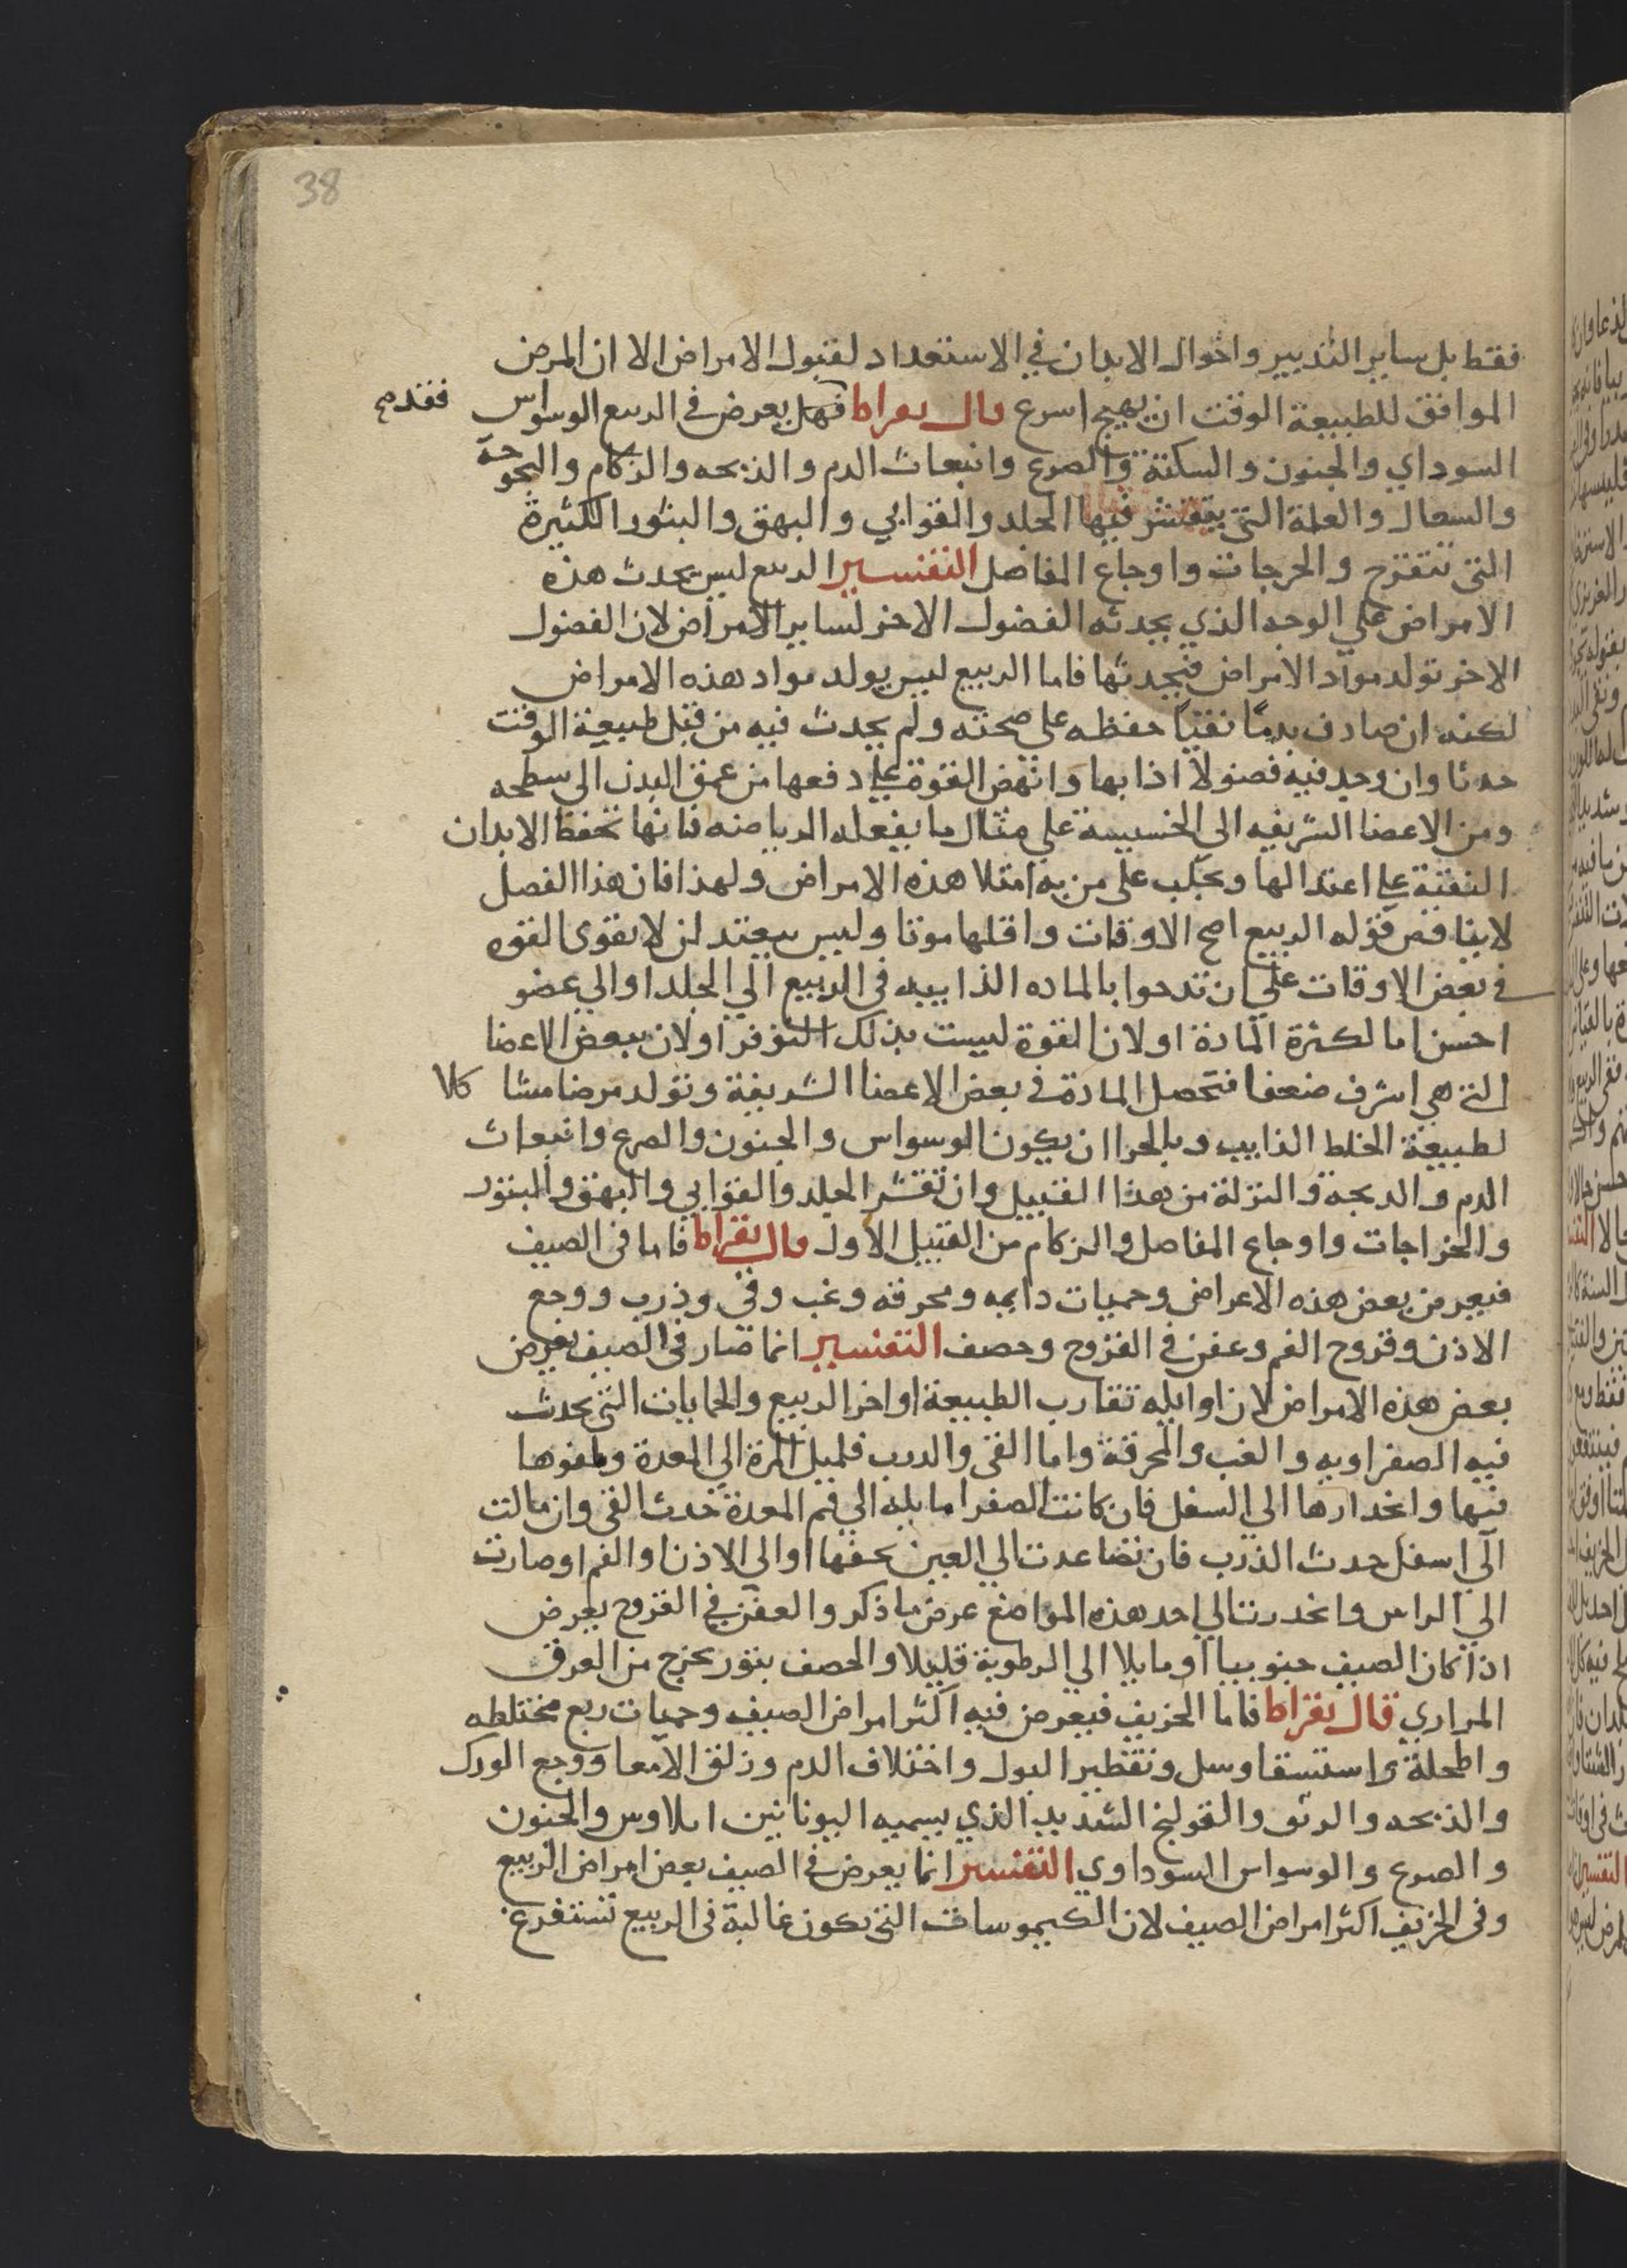 38
فقط بل ساير التدبير واحوال الابدان في الاستعداد لقبول الامراض الا ان المرض
الموافق للطبيعة الوقت ان يهيج اسرع قال بقراط فهل يعرض في الربيع الوسواس
السوداي والجنون والسكتة والصرع وانبعاث الدم والذبحه والزكام والبحوحة
والسعال والعلة التي يتقشر فيها الجلد والقوابي والبهق والبثور الكثيرة
التي تتقرح والخرجات واوجاع المفاصل التفسير الربيع ليس يحدث هذه
الامراض علي الوجه الذي يحدثه الفصول الاخر لساير الامراض لان الفصول
الاخر تولد مواد الامراض فيحدثها فاما الربيع ليس يولد مواد هذه الامراض
لكنه ان صادف بدنًا نقيًا حفظه علي صحته ولم يحدث فيه من قبل طبيعة الوقت
حدثا وان وجد فيه فصولا اذابها وانهض القوة علي دفعها من عمق البدن الي سطحه
ومن الاعضا الشريفه الي الخسيسة علي مثال ما يفعله الرياضه فانها تحفظ الابدان
النقية علي اعتدالها وتجلب علي من به امتلا هذه الامراض ولهذا فان هذا الفصل
لا يناقض قوله الربيع اصح الاوقات واقلها موتا وليس يبعتد ان لا يقوي القوه
في بعض الاوقات علي ان تدحوا بالماده الذاييه في الربيع الي الجلد او الي عضو
احسن اما لكثرة المادة او لان القوة ليست بذلك التوفر او لان ببعض الاعضا
التي هي اشرف ضعفا فتحصل المادة في بعض الاعضا الشريفة وتولد مرضا مشاكلا
لطبيعة الخلط الذايب وبالحرا ان يكون الوسواس والجنون والصرع وانبعاث
الدم والدبحة والنزلة من هذا القبيل وان تقشر الجلد والقوابي والبهق والبثور
والخراجات واوجاع المفاصل والزكام من القبيل الاول قال بقراط فاما في الصيف
فيعرض بعض هذه الاعراض وحميات دايمه ومحرقه وغب وقي وذرب ووجع
الاذن وقروح الفم وعفن في القروح وحصف التفسير انما صار في الصيف يعرض
بعض هذه الامراض لان اوايله تقارب الطبيعة اواخر الربيع والحمايات التي يحدث
فيه الصفراويه والغب والمحرقة واما القي والدرب فلميل المرة الي المعدة وطفوها
فيها وانحدارها الي السفل فان كانت الصفرا مايله الي فم المعدة حدث القي وان مالت
الي اسفل حدث الذرب فان تصاعدت الي العين بحفها او الي الاذن او الفم او صارت
الي الراس وانحدرت الي احد هذه المواضع عرض ما ذكر والعفن في القروح يعرض
اذا كان الصيف جنوبيا او مايلا الي الرطوبة قليلا والحصف بثور يخرج من العرق
المراري قال بقراط فاما الخريف فيعرض فيه اكثر امراض الصيف وحميات ربع مختلطه
واطحلة واستسقا وسل وتقطير البول واختلاف الدم وزلق الامعا ووجع الورك
والذبحه والربو والقولنج الشديد الذي يسميه اليونانين ايلاوس والجنون
والصرع والوسواس السوداوي التفسير انما يعرض في الصيف بعض امراض الربيع
وفي الخريف اكثر امراض الصيف لان الكيموسات التي يكون غالبة في الربيع تستفرغ